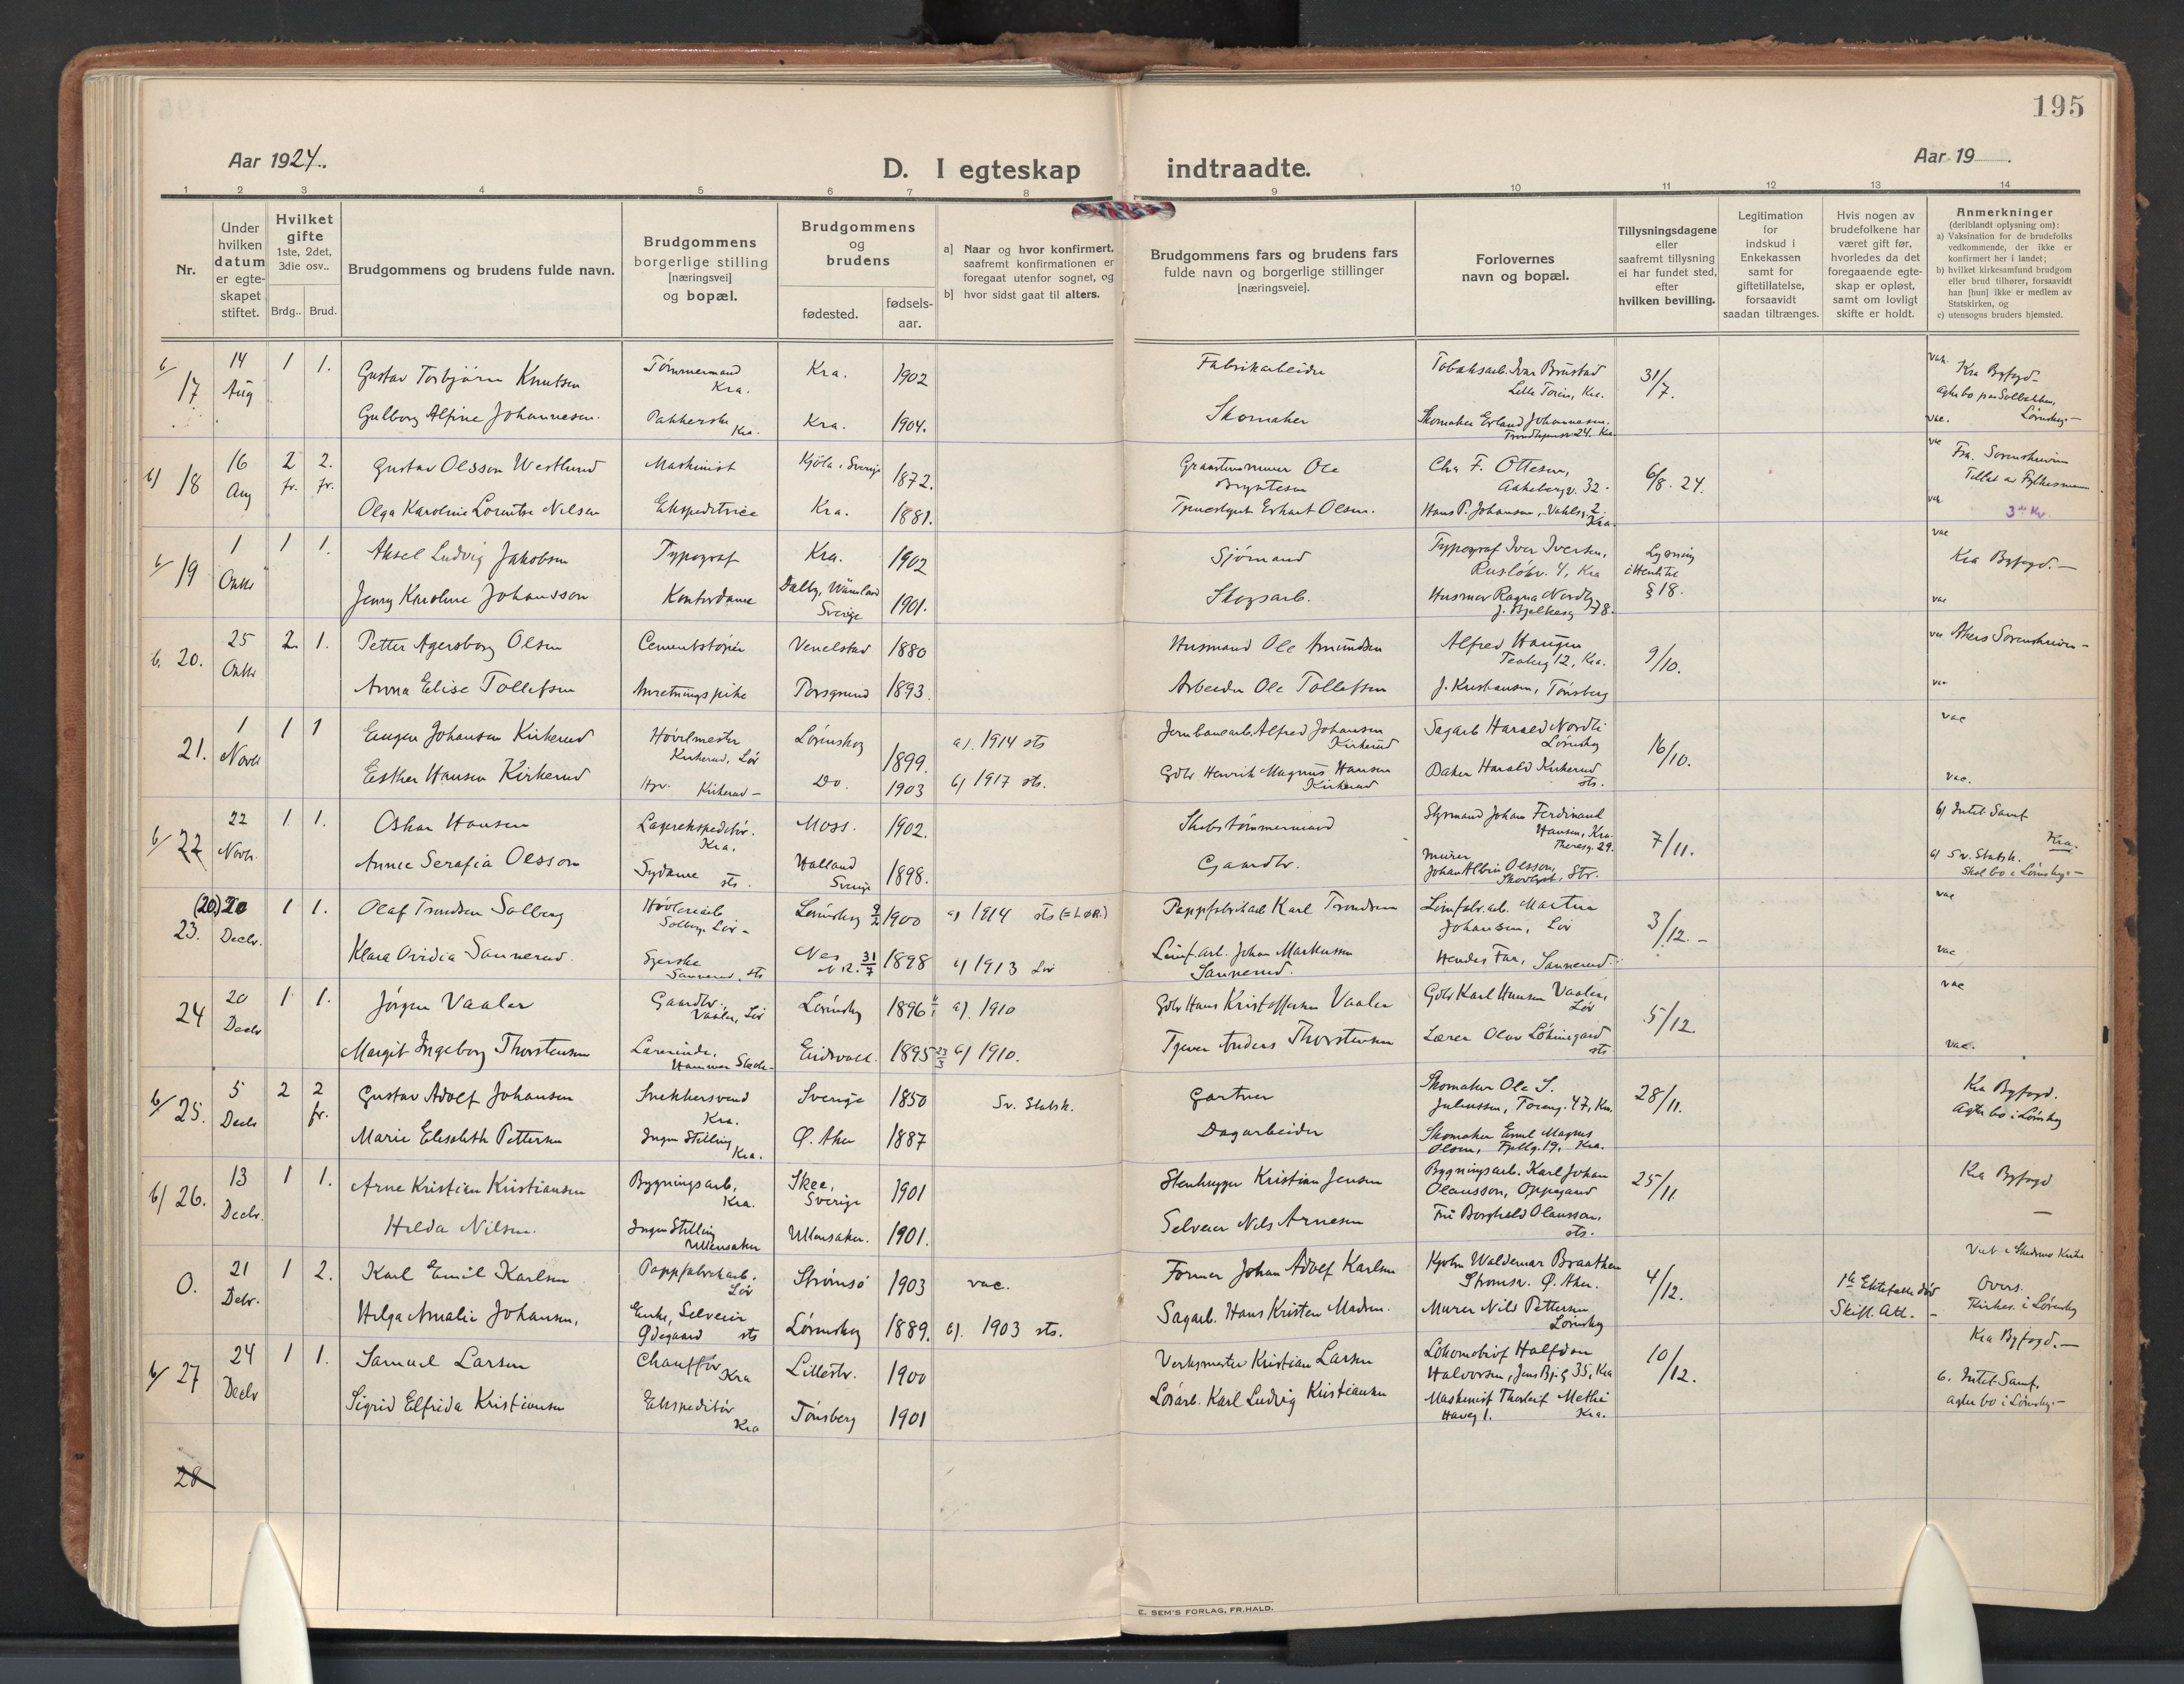 195
Aar 1924.
D. I egteskap indtraadte.
Aar 19 .
1 2 3 4 5 6 7 8 9 10 11 12 13 14
Nr.
Under hvilken datum er egte-skapet stiftet.
Hvilket gifte
1ste, 2det, 3die osv..
Brdg.. Brud.
Brudgommens og brudens fulde navn.
Brudgommens
borgerlige stilling
[næringsvei]
og bopæl.
Brudgommens
og
brudens
fødested.
fødsels-
aar.
a] Naar og hvor konfirmert,
saafremt konfirmationen er
foregaat utenfor sognet, og
b] hvor sidst gaat til alters.
Brudgommens fars og brudens fars
fulde navn og borgerlige stillinger
[næringsveie].
Forlovernes
navn og bopæl.
Tillysningsdagene
eller
saafremt tillysning
ei har fundet sted,
efter
hvilken bevilling.
Legitimation
for
indskud i
Enkekassen
samt for
giftetillatelse,
forsaavidt
saadan tiltrænges.
Hvis nogen av
brudefolkene har
været gift før,
hvorledes da det
foregaaende egte-
skap er opløst,
samt om lovligt
skifte er holdt.
Anmerkninger
(deriblandt oplysning om):
a) Vaksination for de brudefolks
vedkommende, der ikke er
konfirmert her i landet;
b) hvilket kirkesamfund brudgom
eller brud tilhører, forsaavidt
han [hun] ikke er medlem av
Statskirken, og
c) utensogns bruders hjemsted.
b/ 17 14 Aug 1 1. Gustav Torbjørn Knutsen Tömmermand Kra. Kra. 1902 Fabrikarbeider Tobaksarb. Ivar Brustad Lille Töien, Kra. 31/7. vak. Kra Byfogd-
Gulborg Alfine Johannesen. Pakkerske Kra. Kra. 1904. Skomaker Skomaker Erland Johannesen. Trondhjemsv 24. Kra. vac. Lørenskog.-
b/ 18 16 Aug 2 fr. 2. fr. Gustav Olsson Westlund Maskinist Kjöla, Sverige 1872. Ole Bryntesen Chr F. Ottesen, Aakebergv. 32. 6/8. 24. vac Sorenskriver
Olga Karoline Lorentse Nilsen Ekspeditrice Kra. 1881. Erhart Olsen. Hans P. Johansen, Vahlsg. 2. Kra. vac 3de Kv.
b/ 19 1 Oktb 1 1. Aksel Ludvig Jakobsen Typograf Kra. 1902 Sjömand Typograf Iver Iversen, Rusløkv. 4, Kra Lysning § 18. vac Kra Byfogd.-
Jenny Karoline Johansson Kontordame Dalby, Värmland Sverige 1901. Skogsarb. Husmor Ragna Nordby J. Bjelkesg 78. vac
b. 20. 25 Oktb 2 1. Petter Agersborg Olsen Cementstøper Venelstad 1880 Husmand Ole Amundsen Alfred Haugen 12, Kra. 9/10. vac Akers Sorenskriver-
Anna Elise Tollefsen Anretningspike Porsgrund 1893. Arbeider Ole Tollefsen J. Kristiansen, Tönsberg vac
21. 1 Novb 1 1 Eugen Johansen Kirkerud Hövlemester Kirkerud, Lör Lörenskog 1899. a). 1914 sts Jernbanearb. Alfred Johansen Kirkerud Sagarb Harald Nordli Lörenskog 16/10. vac
Esther Hansen Kirkerud Hpr. Kirkerud- Do. 1903 b) 1917 sts. Gdbr Henrik Magnus Hansen Kirkerud Baker Harald Kirkerud sts. vac.
b/ 22 22 Novb. 1. 1. Oskar Hansen Lagerekspeditör. Kra. Moss. 1902. Skibstömmermand Styrmand Johan Ferdinand Hansen, Kra. Theresg. 29. 7/11. b) Intet Samf Kra.
Annie Serafia Olsson Sydame sts. Halland Sverige 1898. Gaardbr. Murer Johan Albin Olsson, Skovlyst, Str. b) Sv. Statsk. Skal bo i Lörenskog.-
(20.) 20 23. Decbr. 1 1. Olaf Trondsen Solberg Hövleriarb Solberg. Lör- Lørenskog 9/2 1900 a) 1914 sts (= LØR.) Pappfabrikarb Karl Trondsen Limfabr.arb. Martin Johansen, Lör 3/12.- vac
Klara Ovidia Sannerud. Syerske Sannerud. sts Nes N.R. 31/7 1898 b) 1913 Lör Limf.arb. Johan Markussen Sannerud. Hendes Far, Sannerud. vac
24 20 Decbr 1 1. Jörgen Vaaler Gaardbr. Vaaler, Lör Lörenskog 1896 a). 1910 Gdbr Hans Kristoffersen Vaaler Gdbr Karl Hansen Vaaler, Lör 5/12. vac
Margit Ingeborg Thorstensen Lærerinde, Hammer Skole- Eidsvold. 1895 23/3 b) 1910. Anders Thorstensen Lærer Olav sts vac.
b/ 25. 5 Decbr 2 2 fr. Gustav Adolf Johansen Snekkersvend Kra. Sverige 1850 Sv. Statsk. Gartner Skomaker Ole S. Juliussen, 47, Kra. 28/11. Kra Byfogd. Agter bo i Lörenskog
Marie Elisabeth Pettersen Ingen Stilling Kra. Ø. Aker 1887 Dagarbeider Skomaker Emil Magnus Olsen, 19, Kra.
b/ 26. 13 Decbr. 1 1. Arne Kristian Kristiansen Bygningsarb, Kra. Skee, Sverige 1901 Stenhugger Kristian Jensen Bygningsarb. Karl Johan Olausson, Oppegaard 25/11. Kra Byfogd
Hilda Nilsen. Ingen Stilling Ullensaker Ullensaker. 1901. Selveier Nils Arnesen Fru Borghild Olausson, sts. -
0. 21 Debr. 1 2. Karl Emil Karlsen Pappfabrikarb. Lör Strömsö 1903 vac. Former Johan Adolf Karlsen Waldemar Braathen Strömsv. Ø. Aker. 4/12. 1ste Ektefælle död Skift. Att. - Viet i Skedsmo Kirke
Helga Amalie Johansen, Enke, Selveier Ödegaard sts Lörenskog 1889. b). 1903 sts. Sagarb. Hans Kristen Madsen. Murer Nils Pettersen Lörenskog
b/ 27 24 Decbr 1 1. Samuel Larsen Chaufför Kra Lillestr. 1900 Verksmester Kristian Larsen Halfdan Halvorsen, Jens Bj. g 35, Kra 10/12. Kra Byfogd.-
Sigrid Elfrida Kristiansen Ekspeditör Kra Tönsberg 1901 Karl Ludvig Kristiansen Maskinist Thorleif Kra. b. Intet Samf. agter bo i Lörenskog.-
28
E. SEM'S FORLAG, FR.HALD.